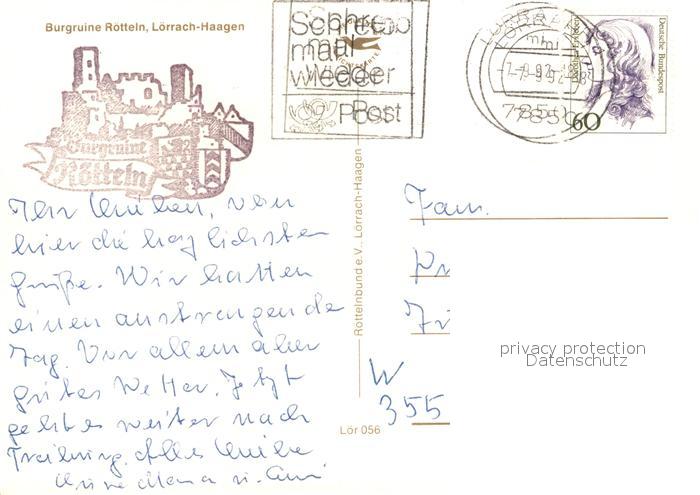 Burgruine Rötteln, Lörrach-Haagen
Burgruine
Rötteln
Schreib
mal
wieder
Post
Deutsche Bundespost
60
Ihr Lieben, von
hier die herzlichsten
Grüße. Wir hatten
einen anstrengende
Tag. Vor allem aber
gutes Wetter. Jetzt
geht es weiter nach
Freiburg. Alles Liebe
Eure Mama u.
Röttelnbund e.V., Lörrach-Haagen
Lör 056
Fam.
W
355
privacy protection
Datenschutz